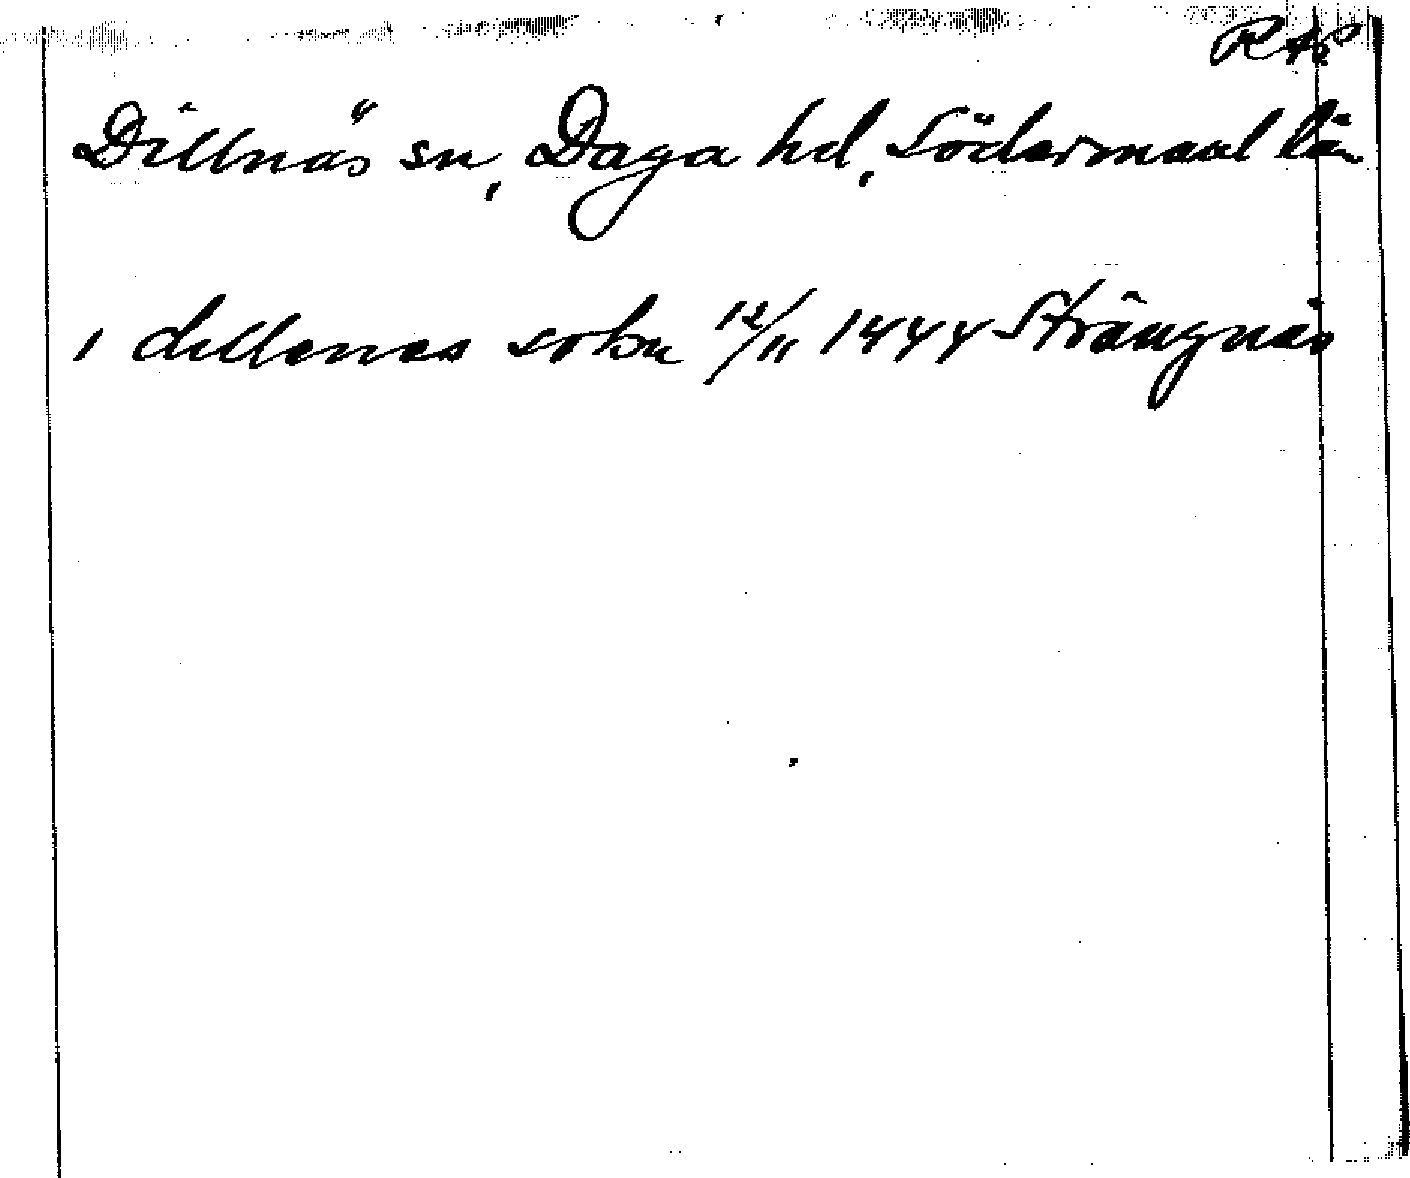 RAP
Dillnäs sn, Daga hd, Södermanl län
i dellenes sokn 12/11 1444 Strängnäs